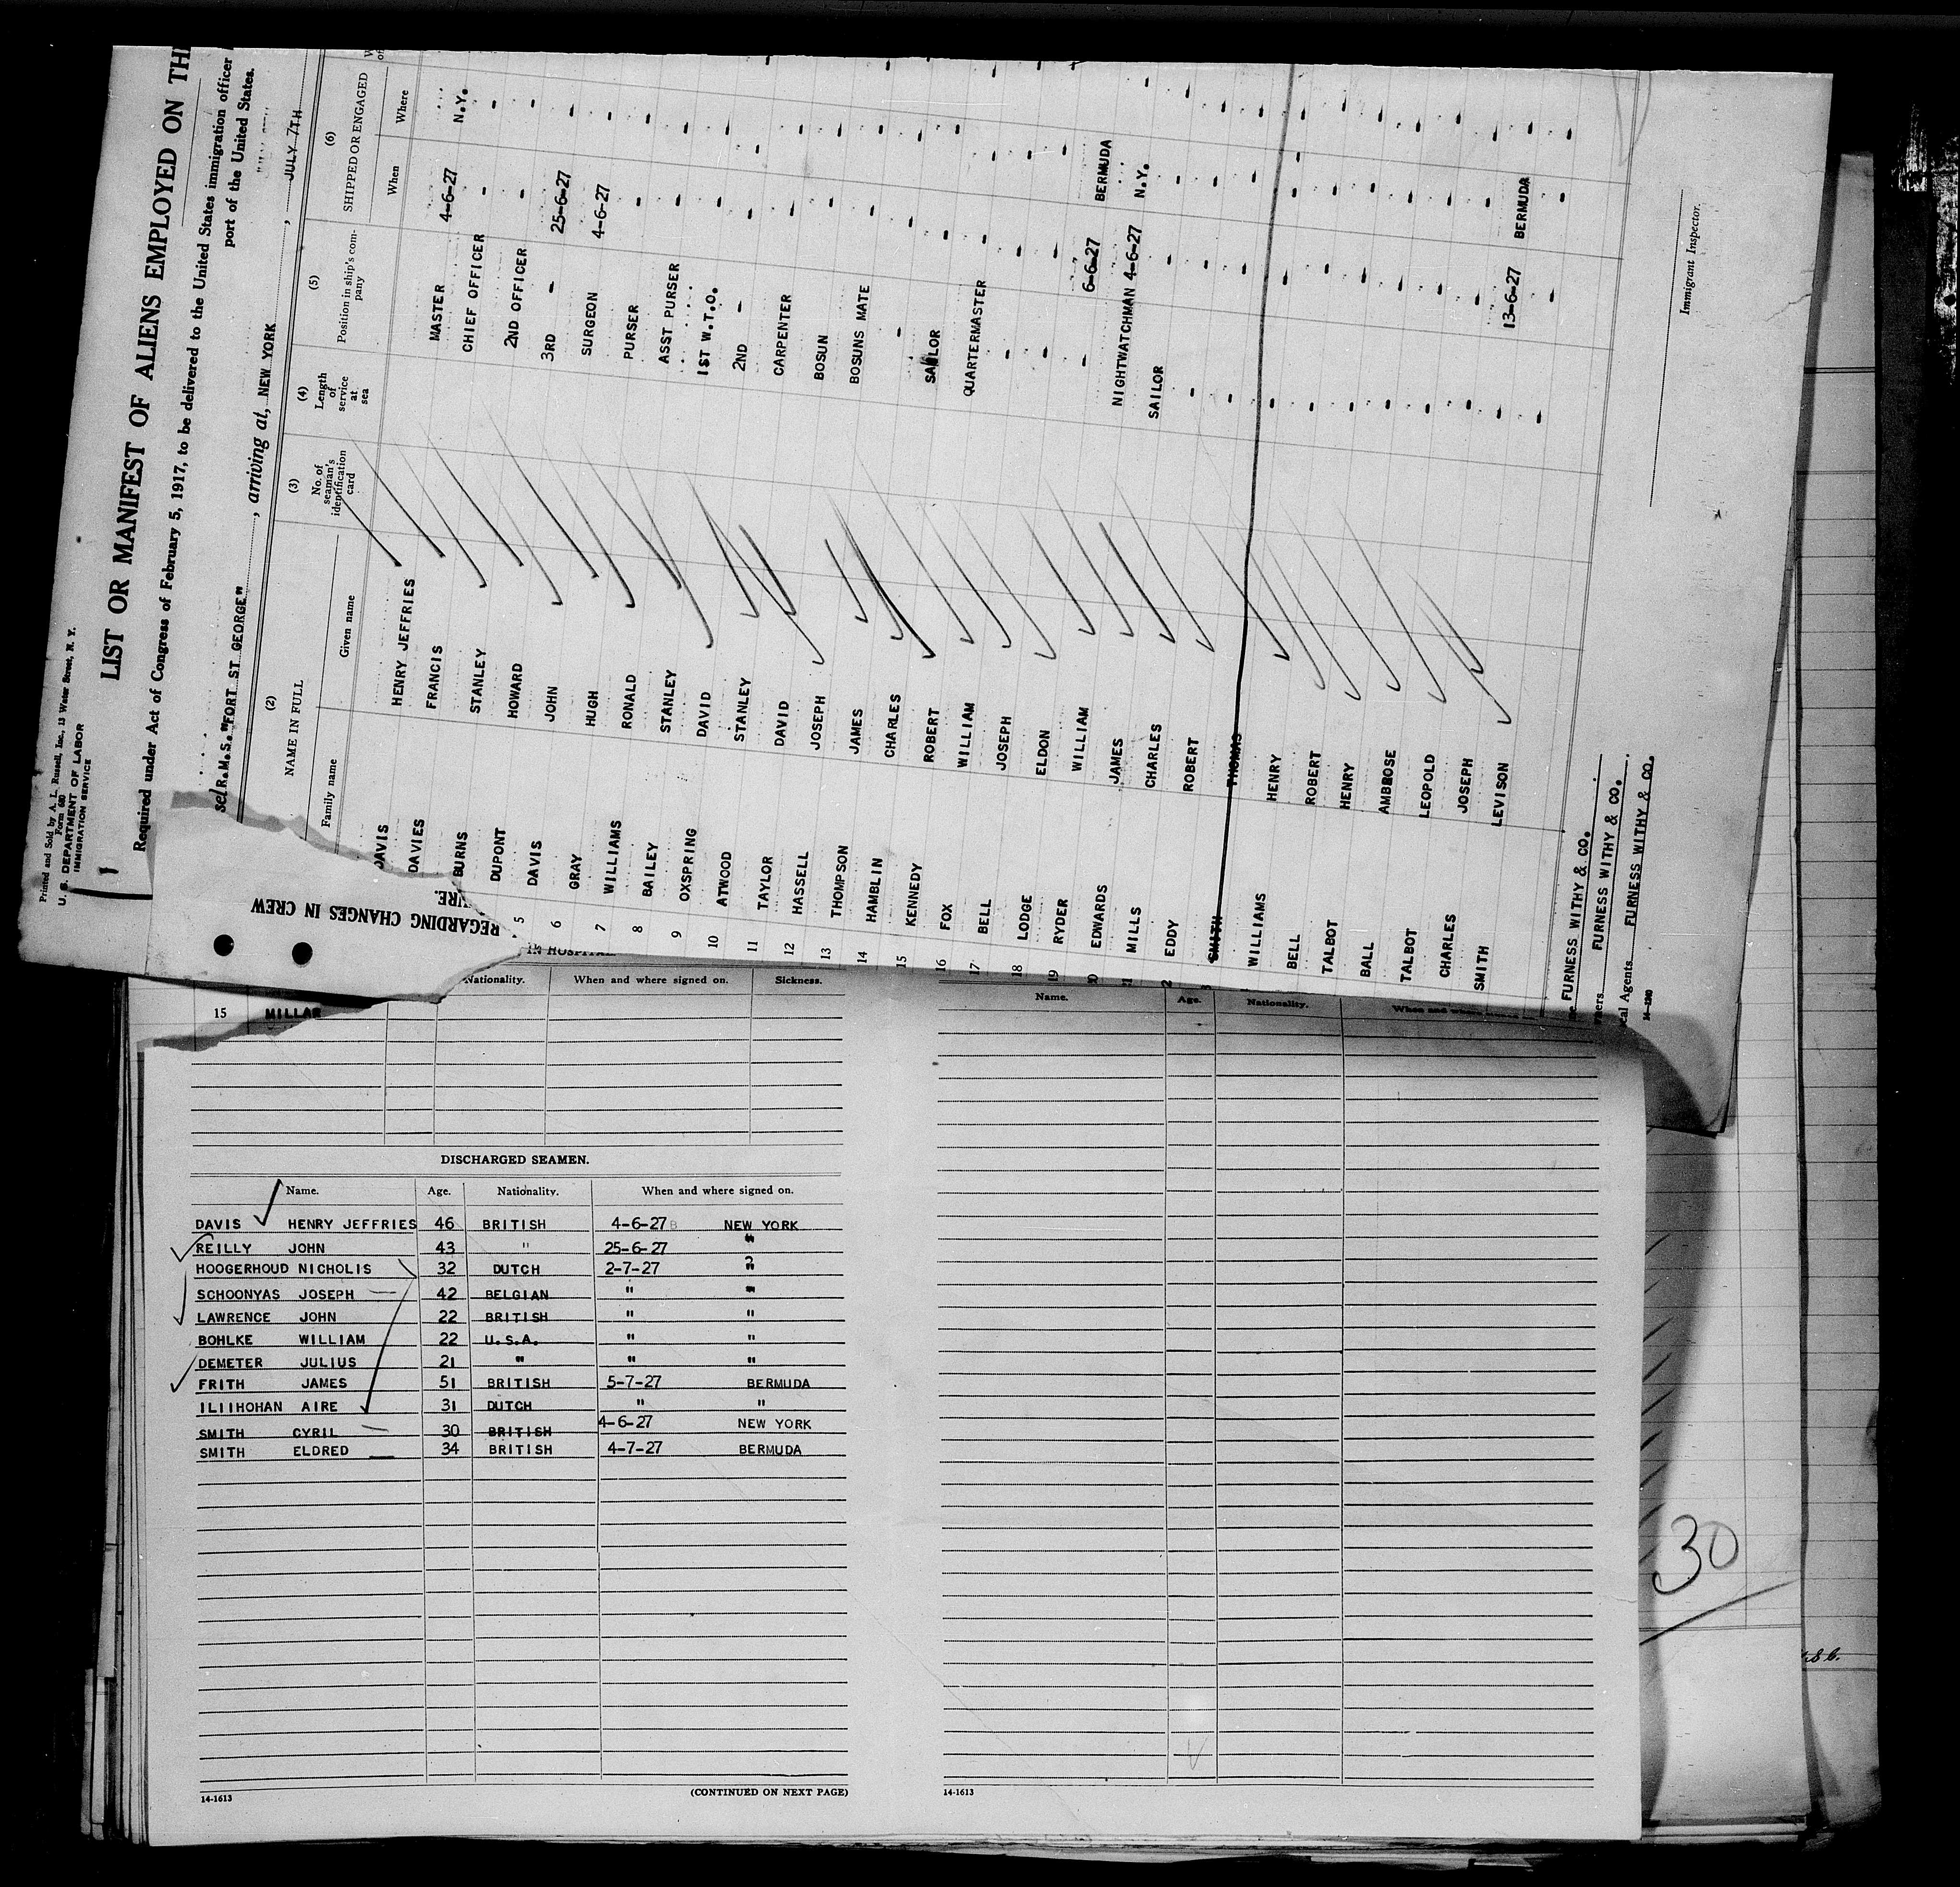 Printed and Sold by A. L. Russell, Inc., 13 Water Street, N. Y.
Form 680
U. S. DEPARTMENT OF LABOR
IMMIGRATION SERVICE
LIST OR MANIFEST OF ALIENS EMPLOYED ON TH
Required under Act of Congress of February 5, 1917, to be delivered to the United States immigration officer
port of the United States.
sel R.M.S. "FORT ST GEORGE", arriving at, NEW YORK, JULY 7TH
(2) (3) (4) (5) (6)
NAME IN FULL No. of seaman's identification card Length of service at sea Position in ship's company SHIPPED OR ENGAGED
Family name Given name When Where
DAVIS HENRY JEFFRIES MASTER 4-6-27 N.Y.
DAVIES FRANCIS CHIEF OFFICER - -
BURNS STANLEY 2ND OFFICER - -
DUPONT HOWARD 3RD - 25-6-27 -
5 DAVIS JOHN SURGEON 4-6-27 -
6 GRAY HUGH PURSER - -
7 WILLIAMS RONALD ASST PURSER - -
8 BAILEY STANLEY 1ST W.T.O. - -
9 OXSPRING DAVID 2ND - - -
10 ATWOOD STANLEY CARPENTER - -
11 TAYLOR DAVID BOSUN - -
12 HASSELL JOSEPH BOSUNS MATE - -
13 THOMPSON JAMES - - -
14 HAMBLIN CHARLES SAILOR - -
15 KENNEDY ROBERT QUARTERMASTER - -
16 FOX WILLIAM - - -
17 BELL JOSEPH - - -
18 LODGE ELDON - 6-6-27 BERMUDA
19 RYDER WILLIAM NIGHTWATCHMAN 4-6-27 N.Y.
20 EDWARDS JAMES SAILOR - -
21 MILLS CHARLES - - -
2 EDDY ROBERT - - -
3 SMITH THOMAS - - -
WILLIAMS HENRY - - -
BELL ROBERT - - -
TALBOT HENRY - - -
BALL AMBROSE - - -
TALBOT LEOPOLD - - -
CHARLES JOSEPH - 13-6-27 BERMUDA
SMITH LEVISON - - -
FURNESS WITHY & CO.
ners FURNESS WITHY & CO.
cal Agents FURNESS WITHY & CO.
14-1240
Immigrant Inspector.
REGARDING CHANGES IN CREW
URE.
IN HOSPITAL
Nationality. When and where signed on. Sickness.
15 MILLAR
Name. Age. Nationality. When and
DISCHARGED SEAMEN.
Name. Age. Nationality. When and where signed on.
DAVIS HENRY JEFFRIES 46 BRITISH 4-6-27 NEW YORK
REILLY JOHN 43 " 25-6-27 "
HOOGERHOUD NICHOLIS 32 DUTCH 2-7-27 "
SCHOONYAS JOSEPH 42 BELGIAN " "
LAWRENCE JOHN 22 BRITISH " "
BOHLKE WILLIAM 22 U.S.A. " "
DEMETER JULIUS 21 " " "
FRITH JAMES 51 BRITISH 5-7-27 BERMUDA
ILIIHOHAN AIRE 31 DUTCH " "
SMITH CYRIL 30 BRITISH 4-6-27 NEW YORK
SMITH ELDRED 34 BRITISH 4-7-27 BERMUDA
(CONTINUED ON NEXT PAGE)
14-1613
14-1613
30